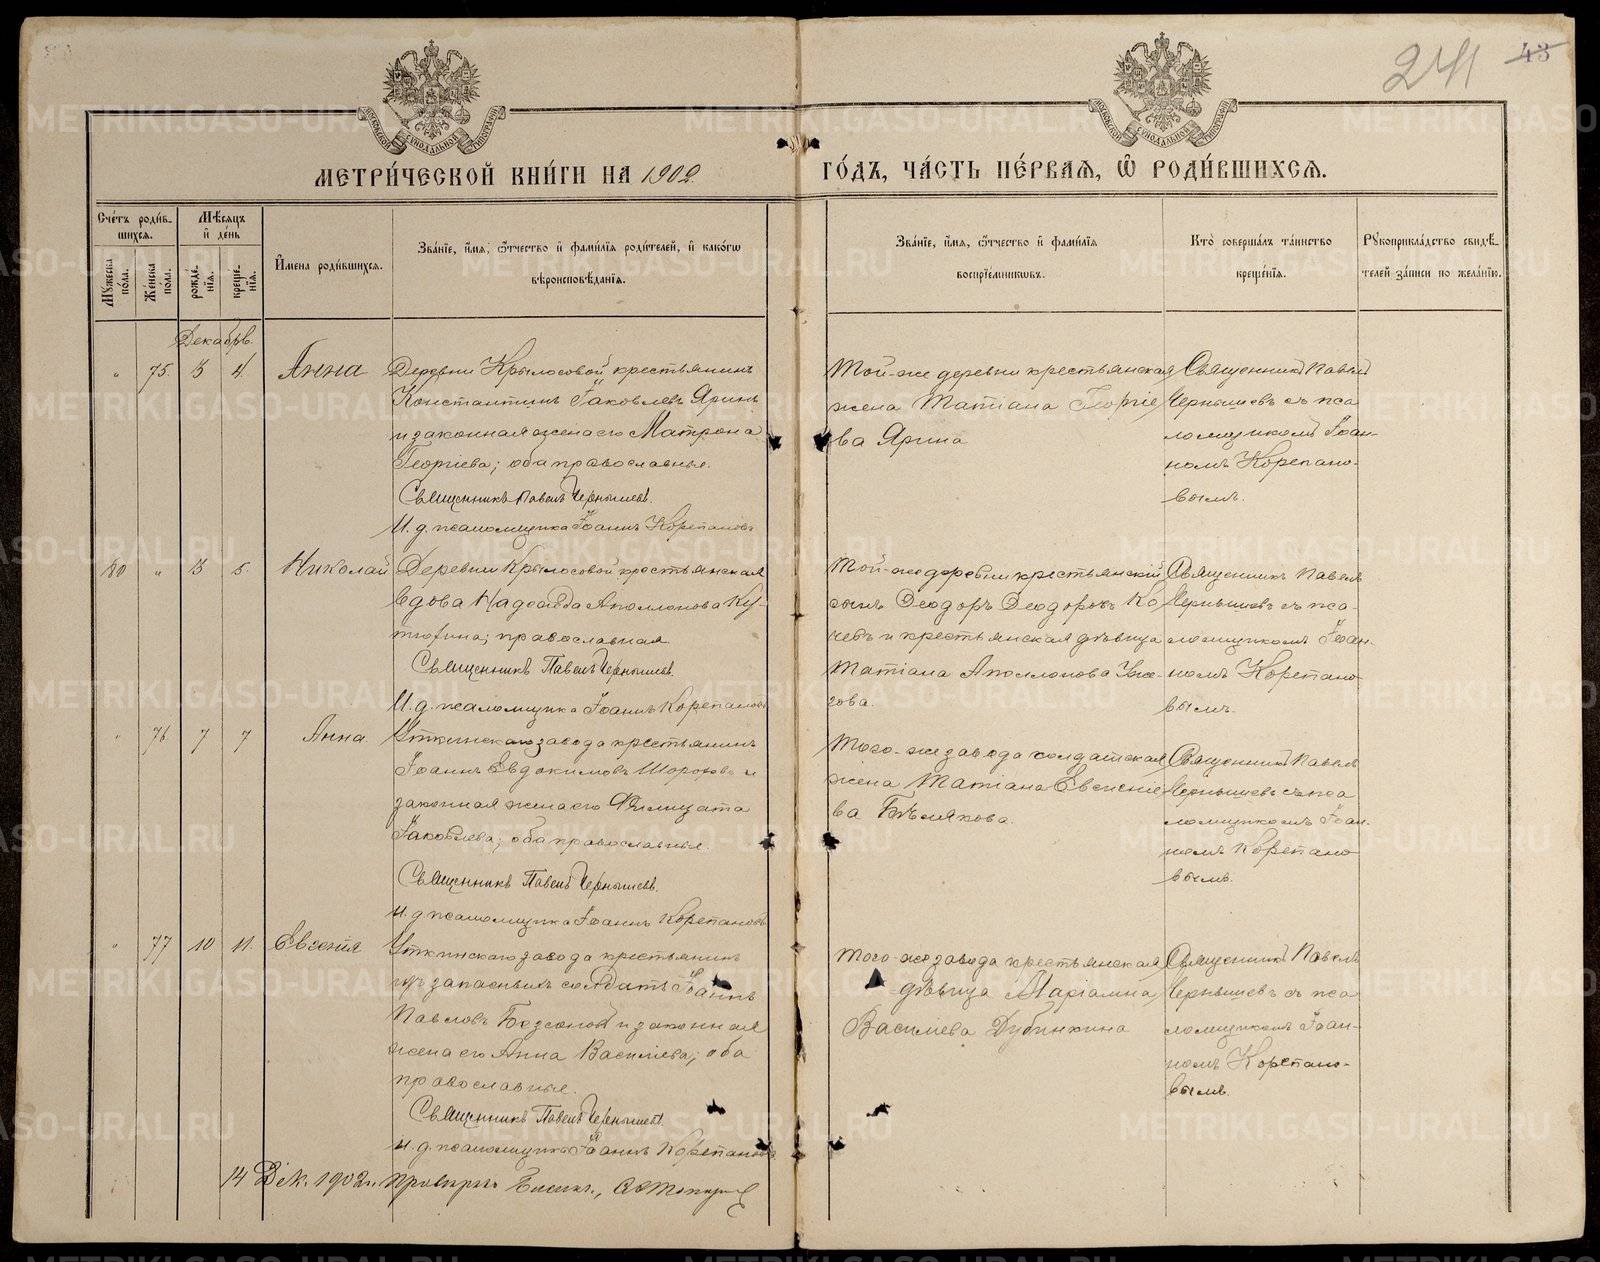 241 43
МЕТРИ́ЧЕСКОЙ КНИ́ГИ НА 1902 ГО́ДЪ, ЧА́СТЬ ПЕ́РВАЯ, Ѽ РОДИ́ВШИХСЯ.
Сче́тъ роди́вшихся.
Мꙋжеска по́ла.
Же́нска пола.
Мѣ́сяцъ и҆ де́нь
рожде́нїя.
креще́нїя.
И҆мена роди́вшихся.
Зва́нїе, и҆́мя, ѻ҆́тчество и҆ фами́лїя роди́телей, и҆ како́гѡ
вѣроисповѣ́данїя.
Зва́нїе, и҆́мя, ѻ҆́тчество и҆ фами́лїя
воспрїе́мниковъ.
Кто̀ соверша́лъ та́инство
креще́нїя.
Рꙋкоприкла́дство свидѣ́-
телей за́писи по жела́нїю.
Декабрь.
" 75. 3 4. Анна
Деревни Крылосовой крестьянинъ
Константинъ Іаковлевъ Яринъ
и законная жена его Матрона
Георгіева; оба православные.
Священникъ Павелъ Чернышевъ.
И. д. псаломщика Іоаннъ Корепановъ
Той-же деревни крестьянская
жена Татіана Георгіе
ва Ярина
Священникъ Павелъ
Чернышевъ съ пса
ломщикомъ Іоан-
номъ Корепано-
вымъ.
80 " 3 5. Николай
Деревни Крылосовой крестьянская
вдова Надежда Аполлонова Ку-
тюхина; православная
Священникъ Павелъ Чернышевъ.
И. д. псаломщика Іоаннъ Корепановъ
Той-же деревни крестьянскій
сынъ Ѳеодоръ Ѳеодоровъ Ко
чевъ и крестьянская дѣвица
Татіана Аполлонова
гова.
Священникъ Павелъ
Чернышевъ съ пса-
ломщикомъ Іоан-
номъ Корепано
вымъ.
" 76 7 7 Анна
Уткинскаго завода крестьянинъ
Іоаннъ Евдокимовъ и
законная жена его Филицата
Іаковлева; оба православные.
Священникъ Павелъ Чернышевъ.
И. д. псаломщика Іоаннъ Корепановъ
Того-же завода солдатская
жена Татіана Евсеніе
ва Бѣлякова.
Священникъ Павелъ
Чернышевъ съ пса
ломщикомъ Іоан-
номъ Корепано
вымъ.
" 77 10 11. Евгенія
Уткинскаго завода крестьянинъ
изъ запасныхъ солдатъ Іоаннъ
Павловъ Безсоновъ и законная
жена его Анна Василіева; оба
православные.
Священникъ Павелъ Чернышевъ.
И. д. псаломщика Іоаннъ Корепановъ
Того-же завода крестьянская
дѣвица Маріамна
Василіева Дубинкина
Священникъ Павелъ
Чернышевъ съ пса
ломщикомъ Іоан-
номъ Корепано-
вымъ.
14 Дек. 1902 г.
METRIKI.GASO-URAL.RU